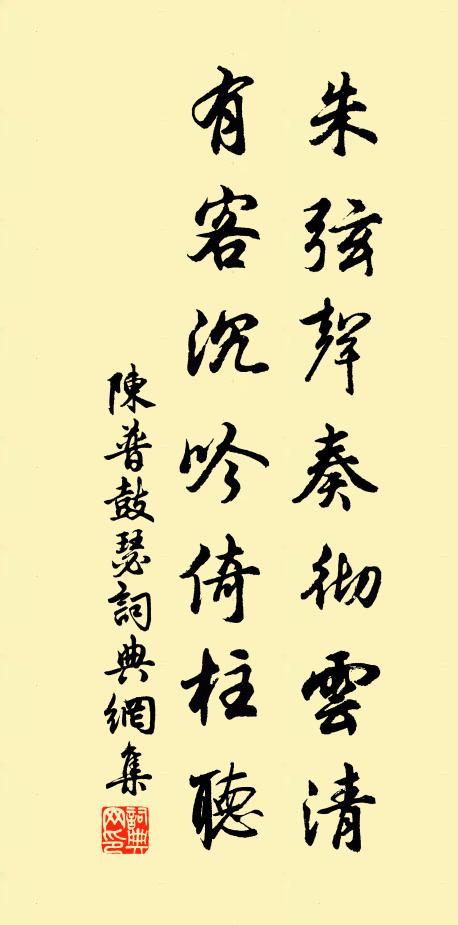 朱弦聲奏徹雲清
有客沉吟倚柱聽
陳普鼓瑟詞典網集
詞典網印